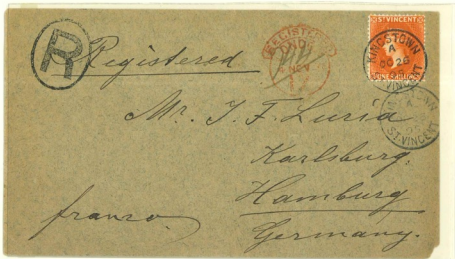 R
Registered
REGISTERED
ST VINCENT
KINGSTOWN
A
OC 26
ST. VINCENT
A
ST. VINCENT
Mr. J. F. Luria
Karlsburg.
Hamburg
Germany.
franco.